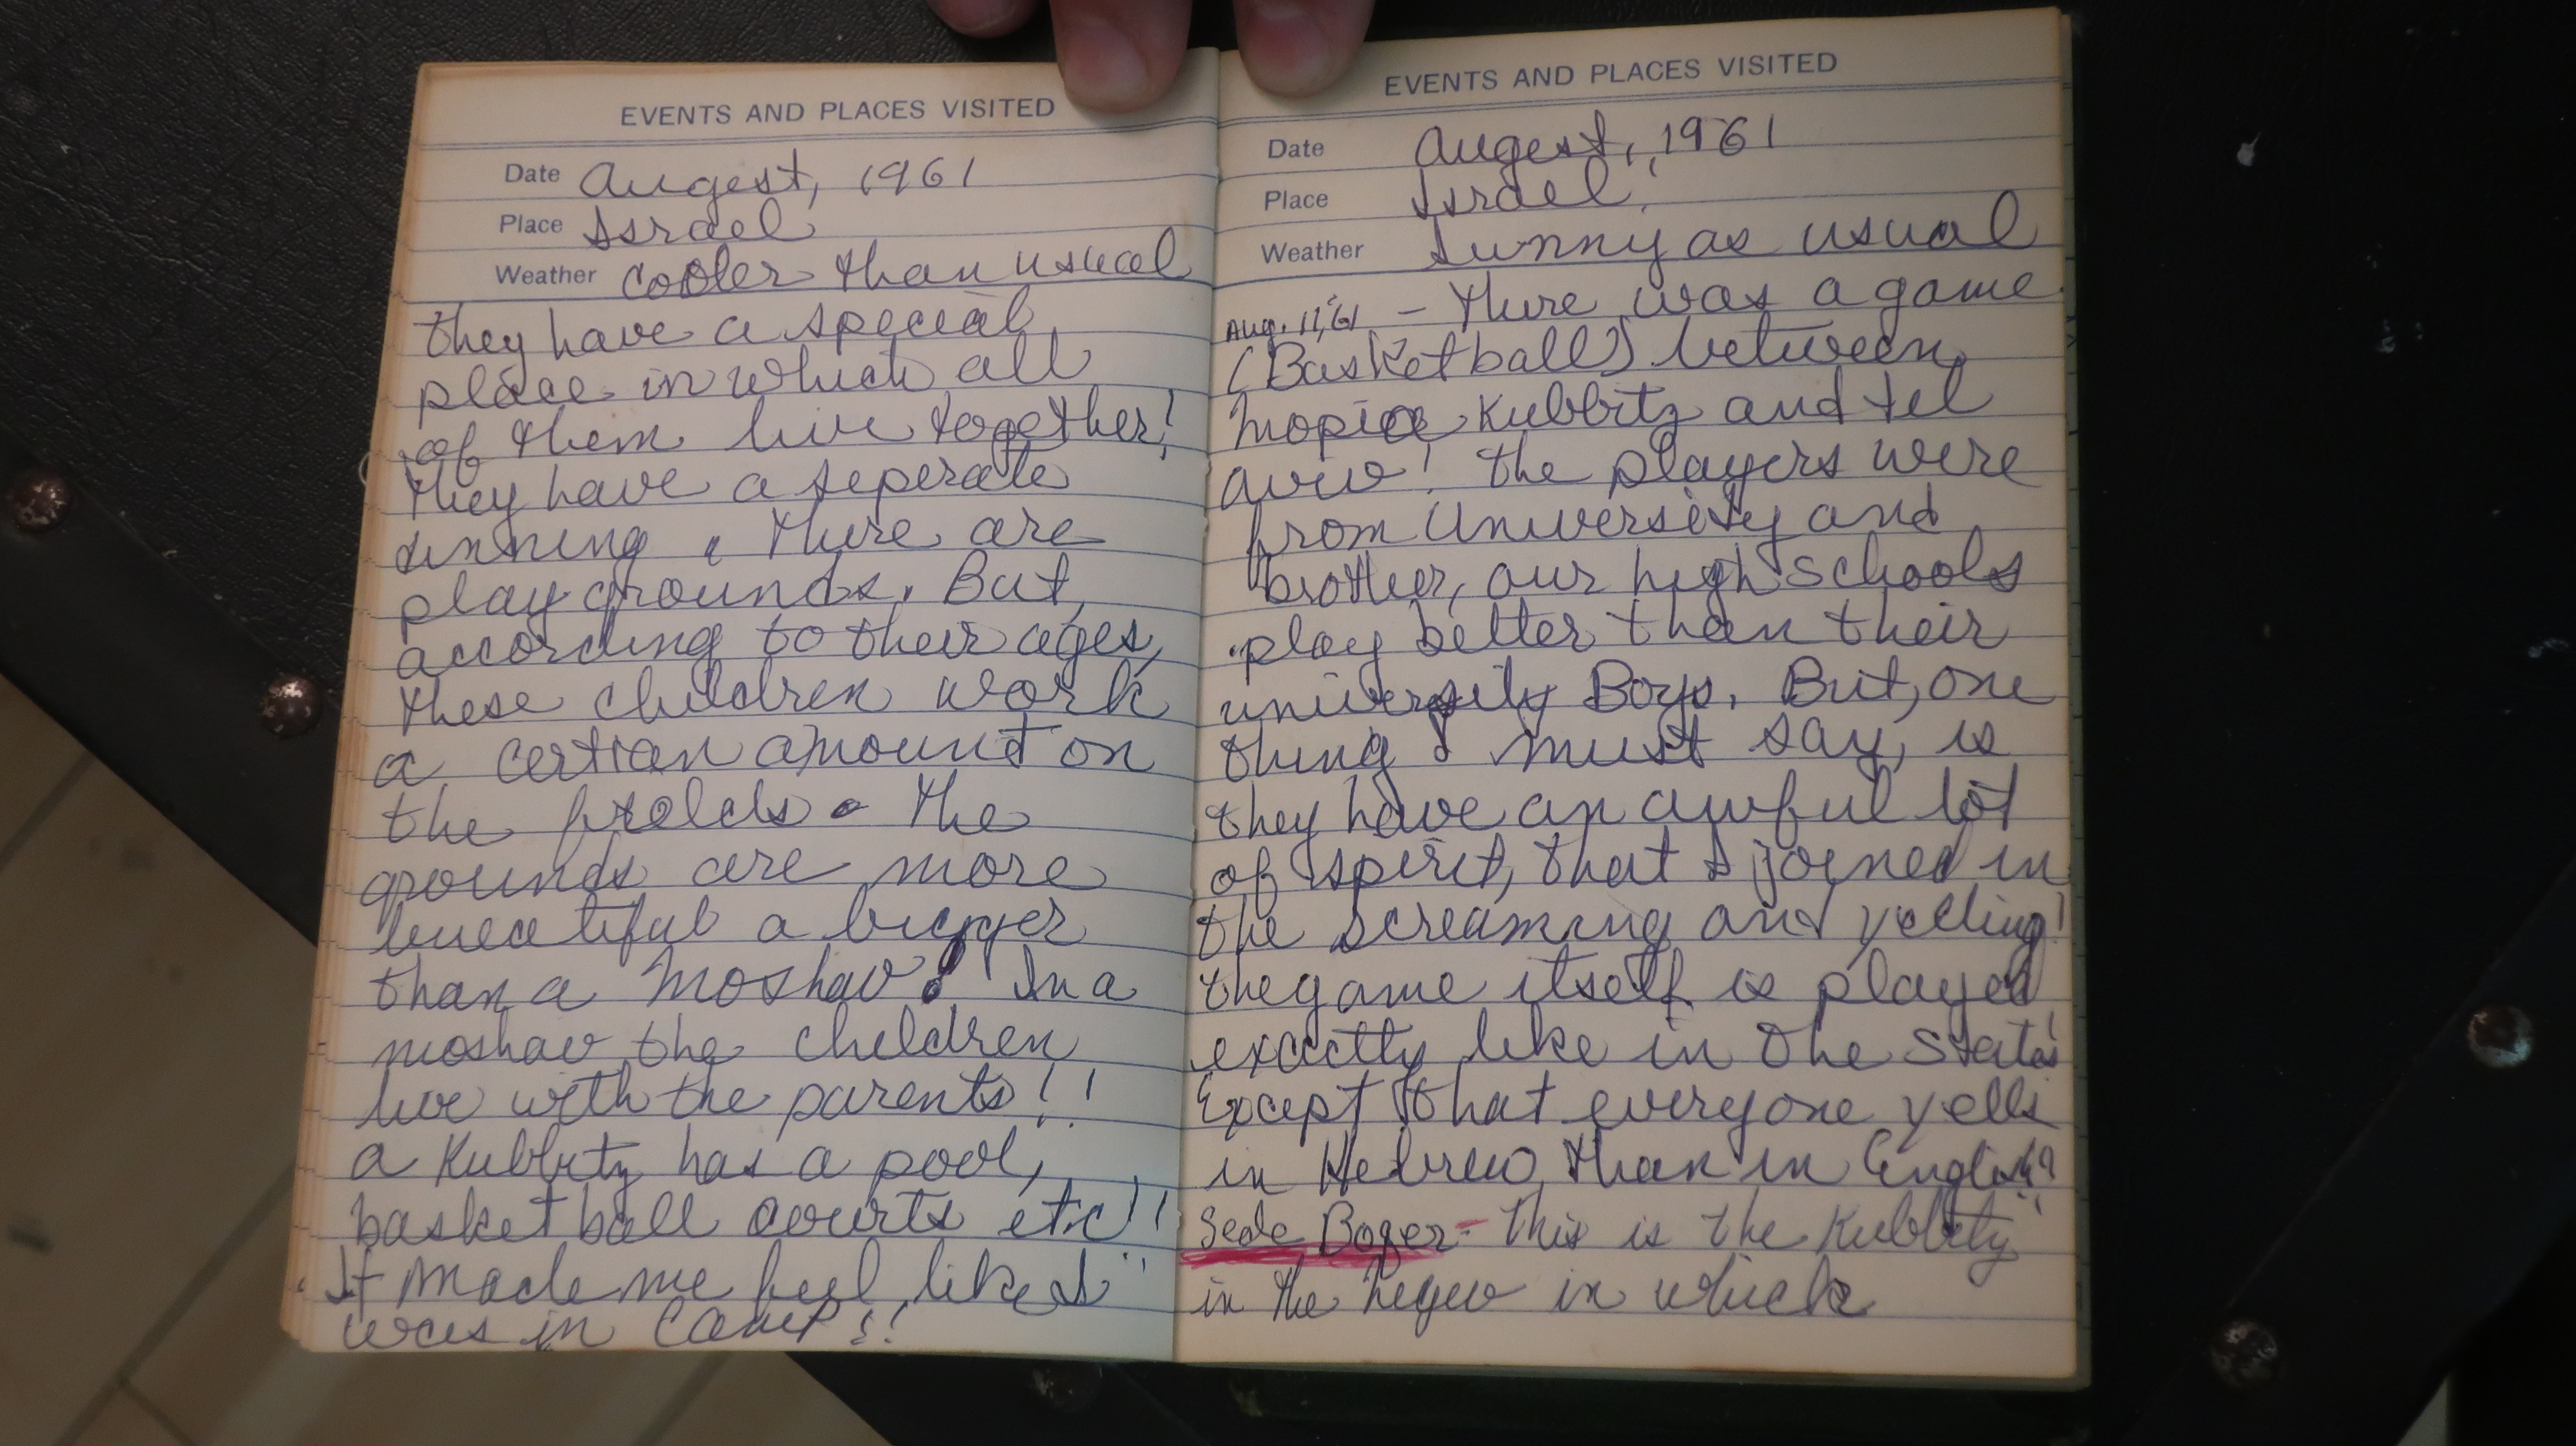 EVENTS AND PLACES VISITED
Date Augest, 1961
Place Israel
Weather cooler than usual
they have a special
place in which all
of them live together!
They have a seperate
dinning. There are
play grounds. But,
according to their ages,
these children work
a certian amount on
the fields. The
grounds are more
a bigger
than a Moshav! In a
moshav the children
live with the parents!!
a Kubbitz has a pool,
basket ball courts etc!!
It made me feel like I
was in Camp!!
EVENTS AND PLACES VISITED
Date Augest, 1961
Place Israel
Weather Sunny as usual
Aug. 11, '61 - There was a game
(Basketball) between
Kubbitz and tel
aviv! The players were
from University and
brother, our high schools
play better than their
university Boys. But, one
thing I must say, is
they have an awful lot
of spirit, that I joined in
the screaming and yelling!
the game itself is played
exactly like in the States
Except that everyone yells
in Hebrew than in English!!
Sede Boger - This is the Kubbitz
in the negev in which